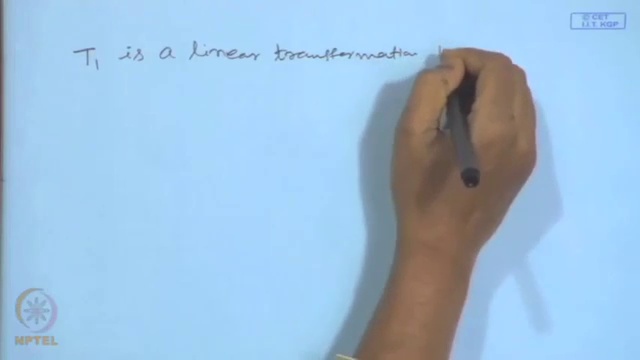 © CET
I.I.T. KGP
T₁ is a linear transformation
NPTEL